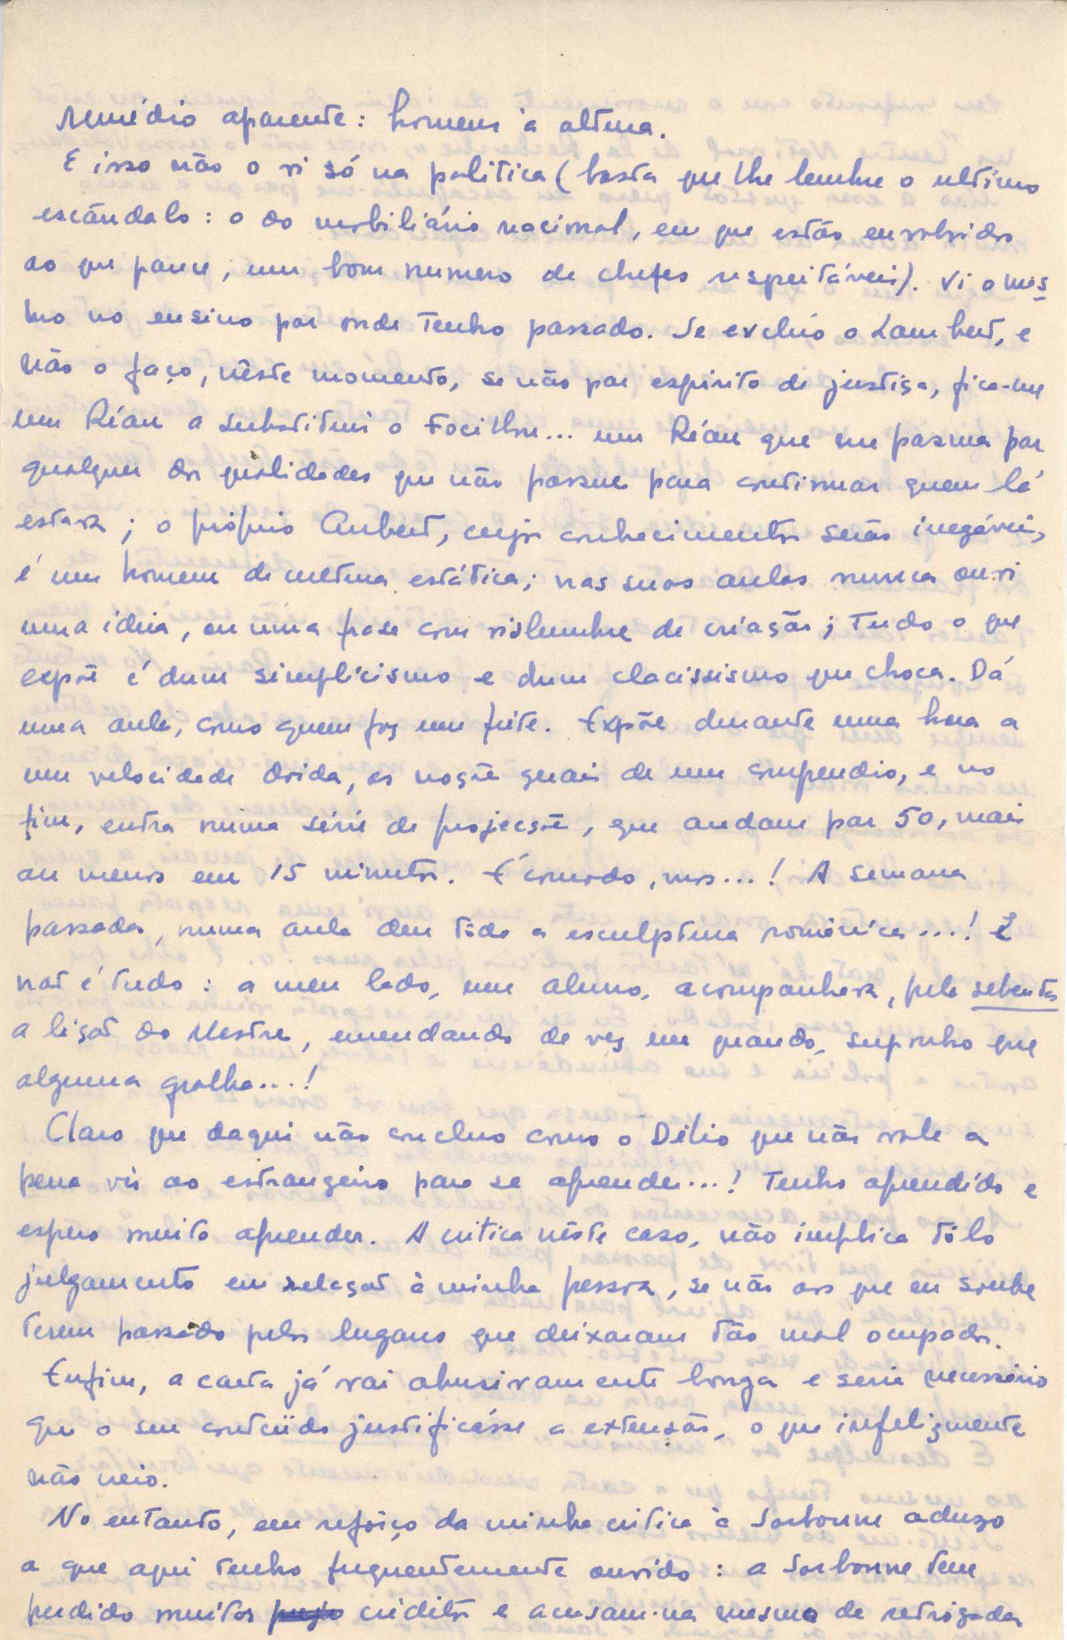 Remédio aparente: homens à altura.
E isso não o vi só na politica (basta que lhe lembre o ultimo
escândalo: o do mobiliário nacional, em que estão envolvidos
ao que parece, um bom numero de chefes respeitáveis). Vi o mes
mo no ensino por onde tenho passado. Se excluo o Lambert, e
não o faço, nêste momento, se não por espirito de justiça, fica-me
um Réau a substituir o Focillon... um Réau que me pasma por
qualquer das qualidades que não possue para continuar quem lá
estava; o próprio Aubert, cujos conhecimentos serão inegáveis,
é um homem de cultura estática; nas suas aulas nunca ouvi
uma ideia, ou uma frase com vislumbre de criação; tudo o que
expõe é dum simplicismo e dum clacissismo que choca. Dá
uma aula, como quem faz um frete. Expõe durante uma hora a
um velocidade doida, as noções gerais de um compendio, e no
fim, entra numa série de projecções, que andam por 50, mais
ou menos em 15 minutos. É cómodo, mas...! A semana
passada, numa aula deu tôda a escultura românica...! E
não é tudo: a meu lado, um aluno, acompanhava, pela sebenta
a lição do Mestre, emendando de vez em quando, suponho que
alguma gralha...!
Claro que daqui não concluo como o Délio que não vale a
pena vir ao estrangeiro para se aprender...! Tenho aprendido e
espero muito aprender. A critica nêste caso, não implica tôlo
julgamento em relação à minha pessoa, se não aos que eu soube
terem passado pelos lugares que deixaram tão mal ocupados.
Enfim, a carta já vai abusivamente longa e seria necessário
que o seu conteúdo justificásse a extensão, o que infelizmente
não veio.
No entanto, em refôrço da minha critica à Sorbonne aduzo
a que aqui tenho frequentemente ouvido: a Sorbonne tem
perdido muitos créditos e acusam-na mesmo de retrógada